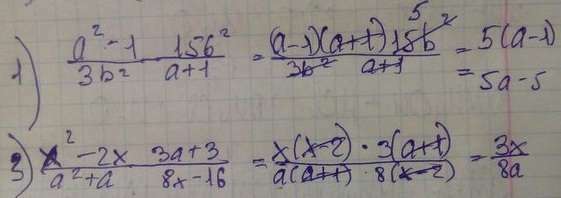 1) (a² - 1)/(3b²) (15b²)/(a+1) = ((a-1)(a+1) 15b² 5)/(3b² a+1) = 5(a-1) = 5a-5
3) (x² - 2x)/(a² + a) (3a+3)/(8x-16) = (x(x-2) · 3(a+1))/(a(a+1) · 8(x-2)) = 3x/8a